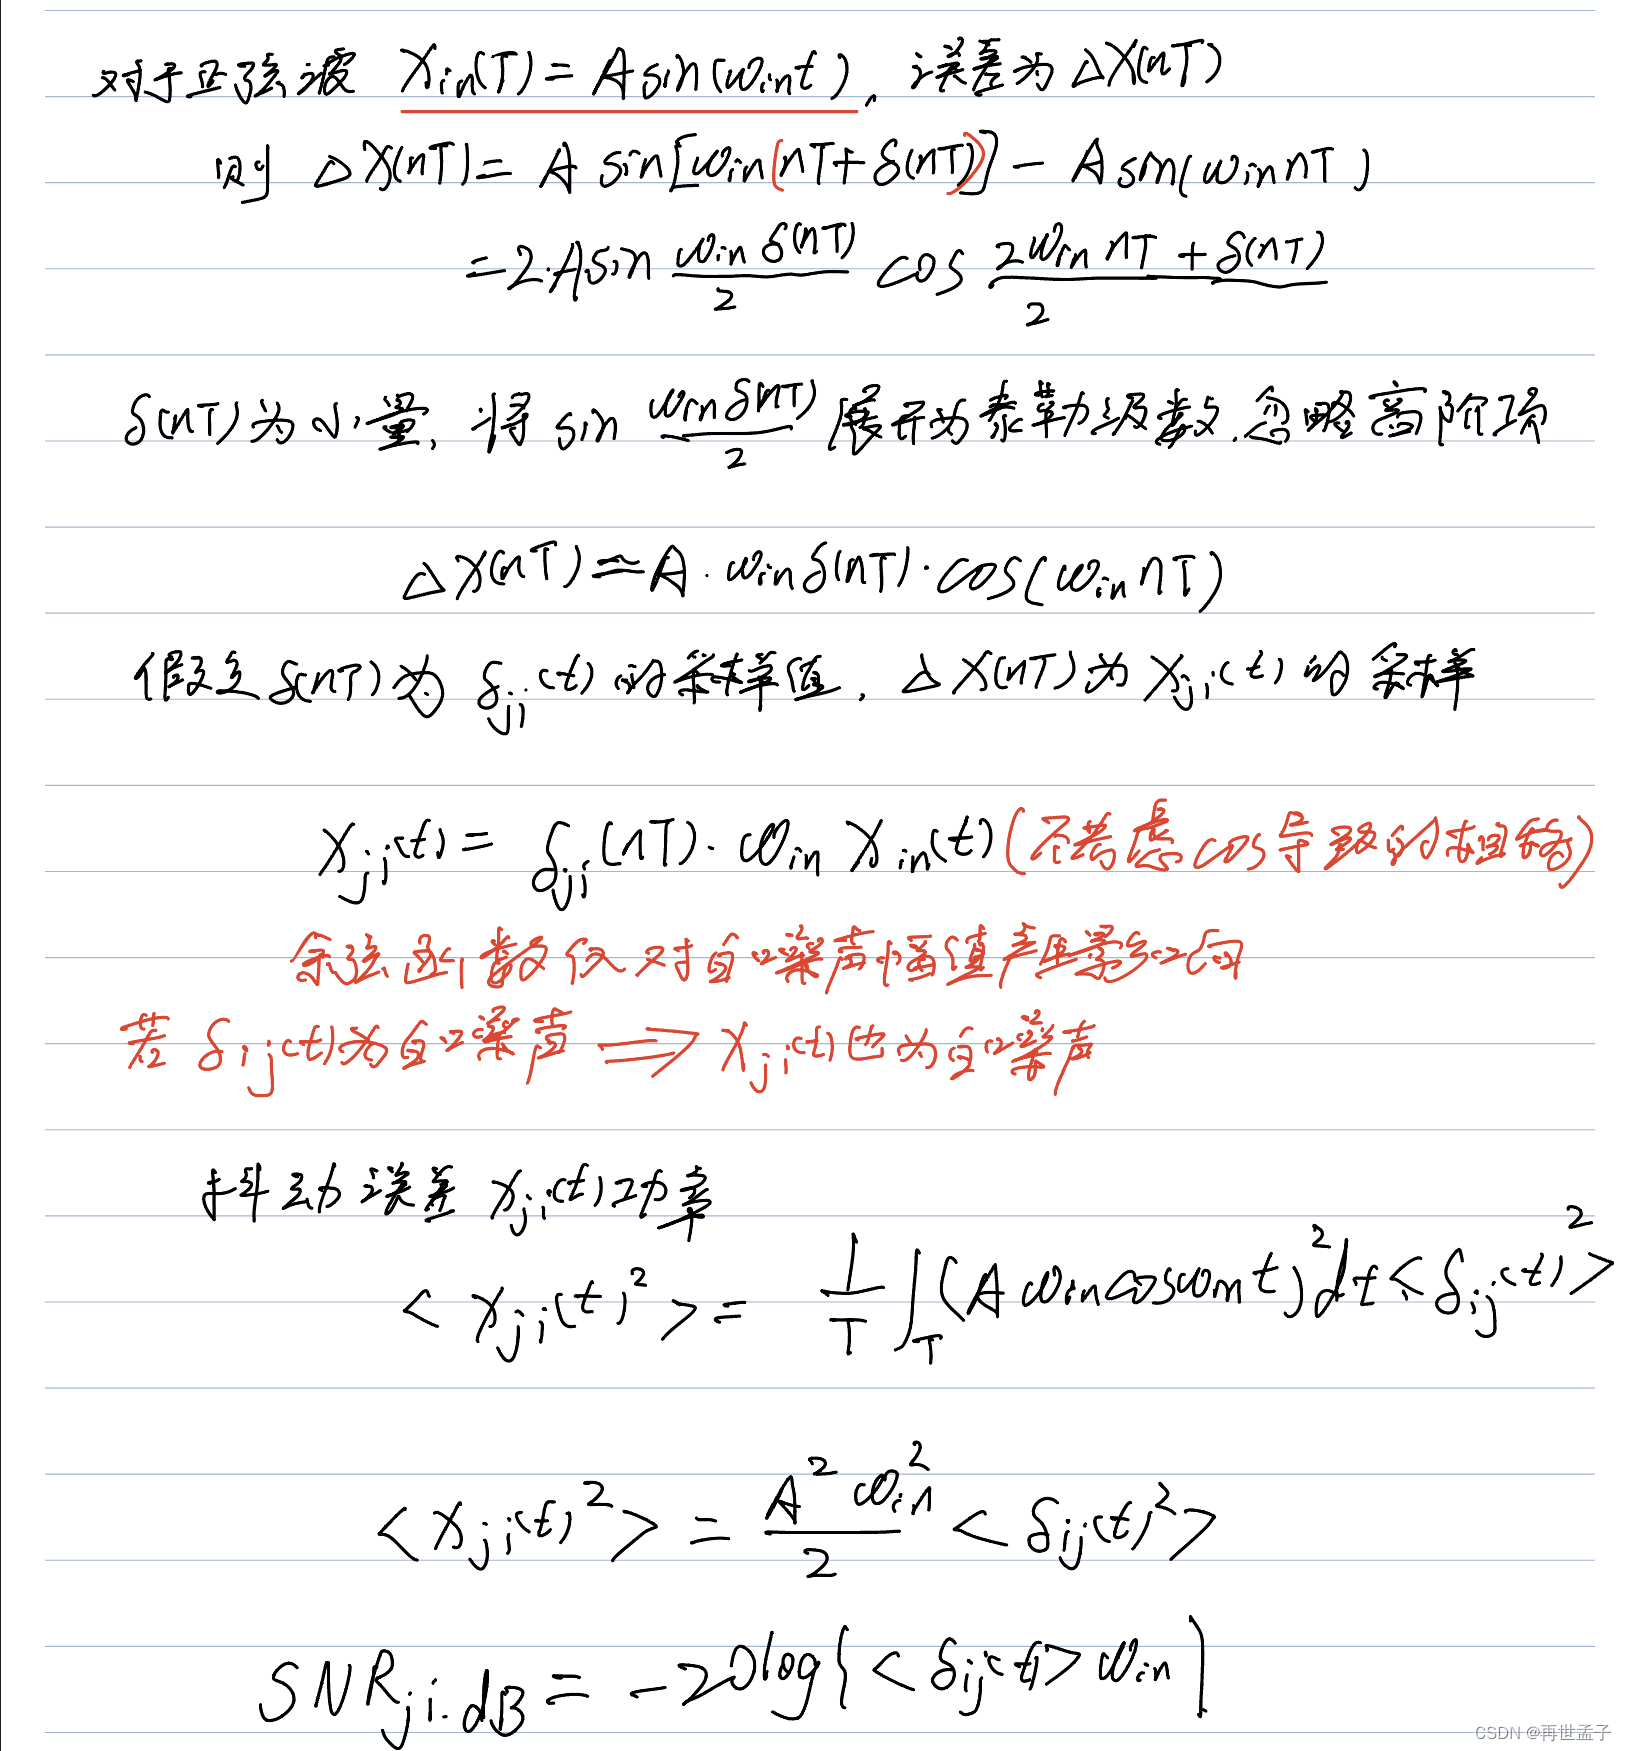 对于正弦波 Xin(T) = A sin(ωint), 误差为 ΔX(nT)
则 ΔX(nT) = A sin[ωin(nT+δ(nT))] − A sin(ωin nT)
= 2·A sin \frac{ωin δ(nT)}{2} cos \frac{2ωin nT + δ(nT)}{2}
δ(nT)为小量, 将 sin \frac{ωin δ(nT)}{2} 展开为泰勒级数, 忽略高阶项
ΔX(nT) ≈ A · ωin δ(nT) · cos(ωin nT)
假定 δ(nT)为 δji(t) 的采样值, ΔX(nT)为 Xji(t) 的采样
Xji(t) = δji(nT) · ωin Xin(t) (不考虑cos导致的相移)
余弦函数仅对白噪声幅值产生影响
若 δij(t)为白噪声 ⟹ Xji(t)也为白噪声
抖动误差 Xji(t)功率
< Xji(t)² > = \frac{1}{T} ∫_T (A ωin cosωin t)² dt < δij(t)² >
< Xji(t)² > = \frac{A² ωin²}{2} < δij(t)² >
SNRji.dB = −20log{< δij(t) > ωin}
CSDN @再世孟子